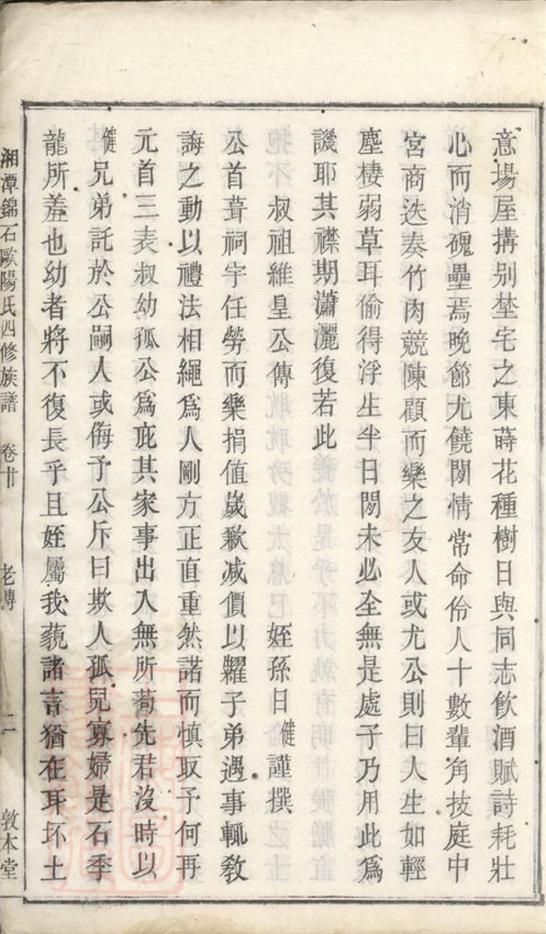 意場屋搆别埜宅之東蒔花種樹日與同志飲酒賦詩耗壯
心而消磈壘焉晚節尤饒閒情常命伶人十數輩角技庭中
宮商迭奏竹肉競陳顧而樂之友人或尤公則曰人生如輕
塵棲弱草耳偷得浮生半日閒未必全無是處子乃用此為
譏耶其襟期瀟灑復若此
叔祖維皇公傳
姪孫日健謹撰
公首葺祠宇任勞而樂捐值歲歉减價以糶子弟遇事輒教
誨之動以禮法相繩爲人剛方正直重然諾而慎取予何再
元首三表叔幼孤公爲庇其家事出入無所苟先君沒時以
健兄弟託於公嗣人或侮予公斥曰欺人孤兒寡婦是石季
龍所羞也幼者將不復長乎且姪屬我藐諸言猶在耳坏土
湘潭錦石歐陽氏四修族譜
卷廿
老傳
二
敦本堂